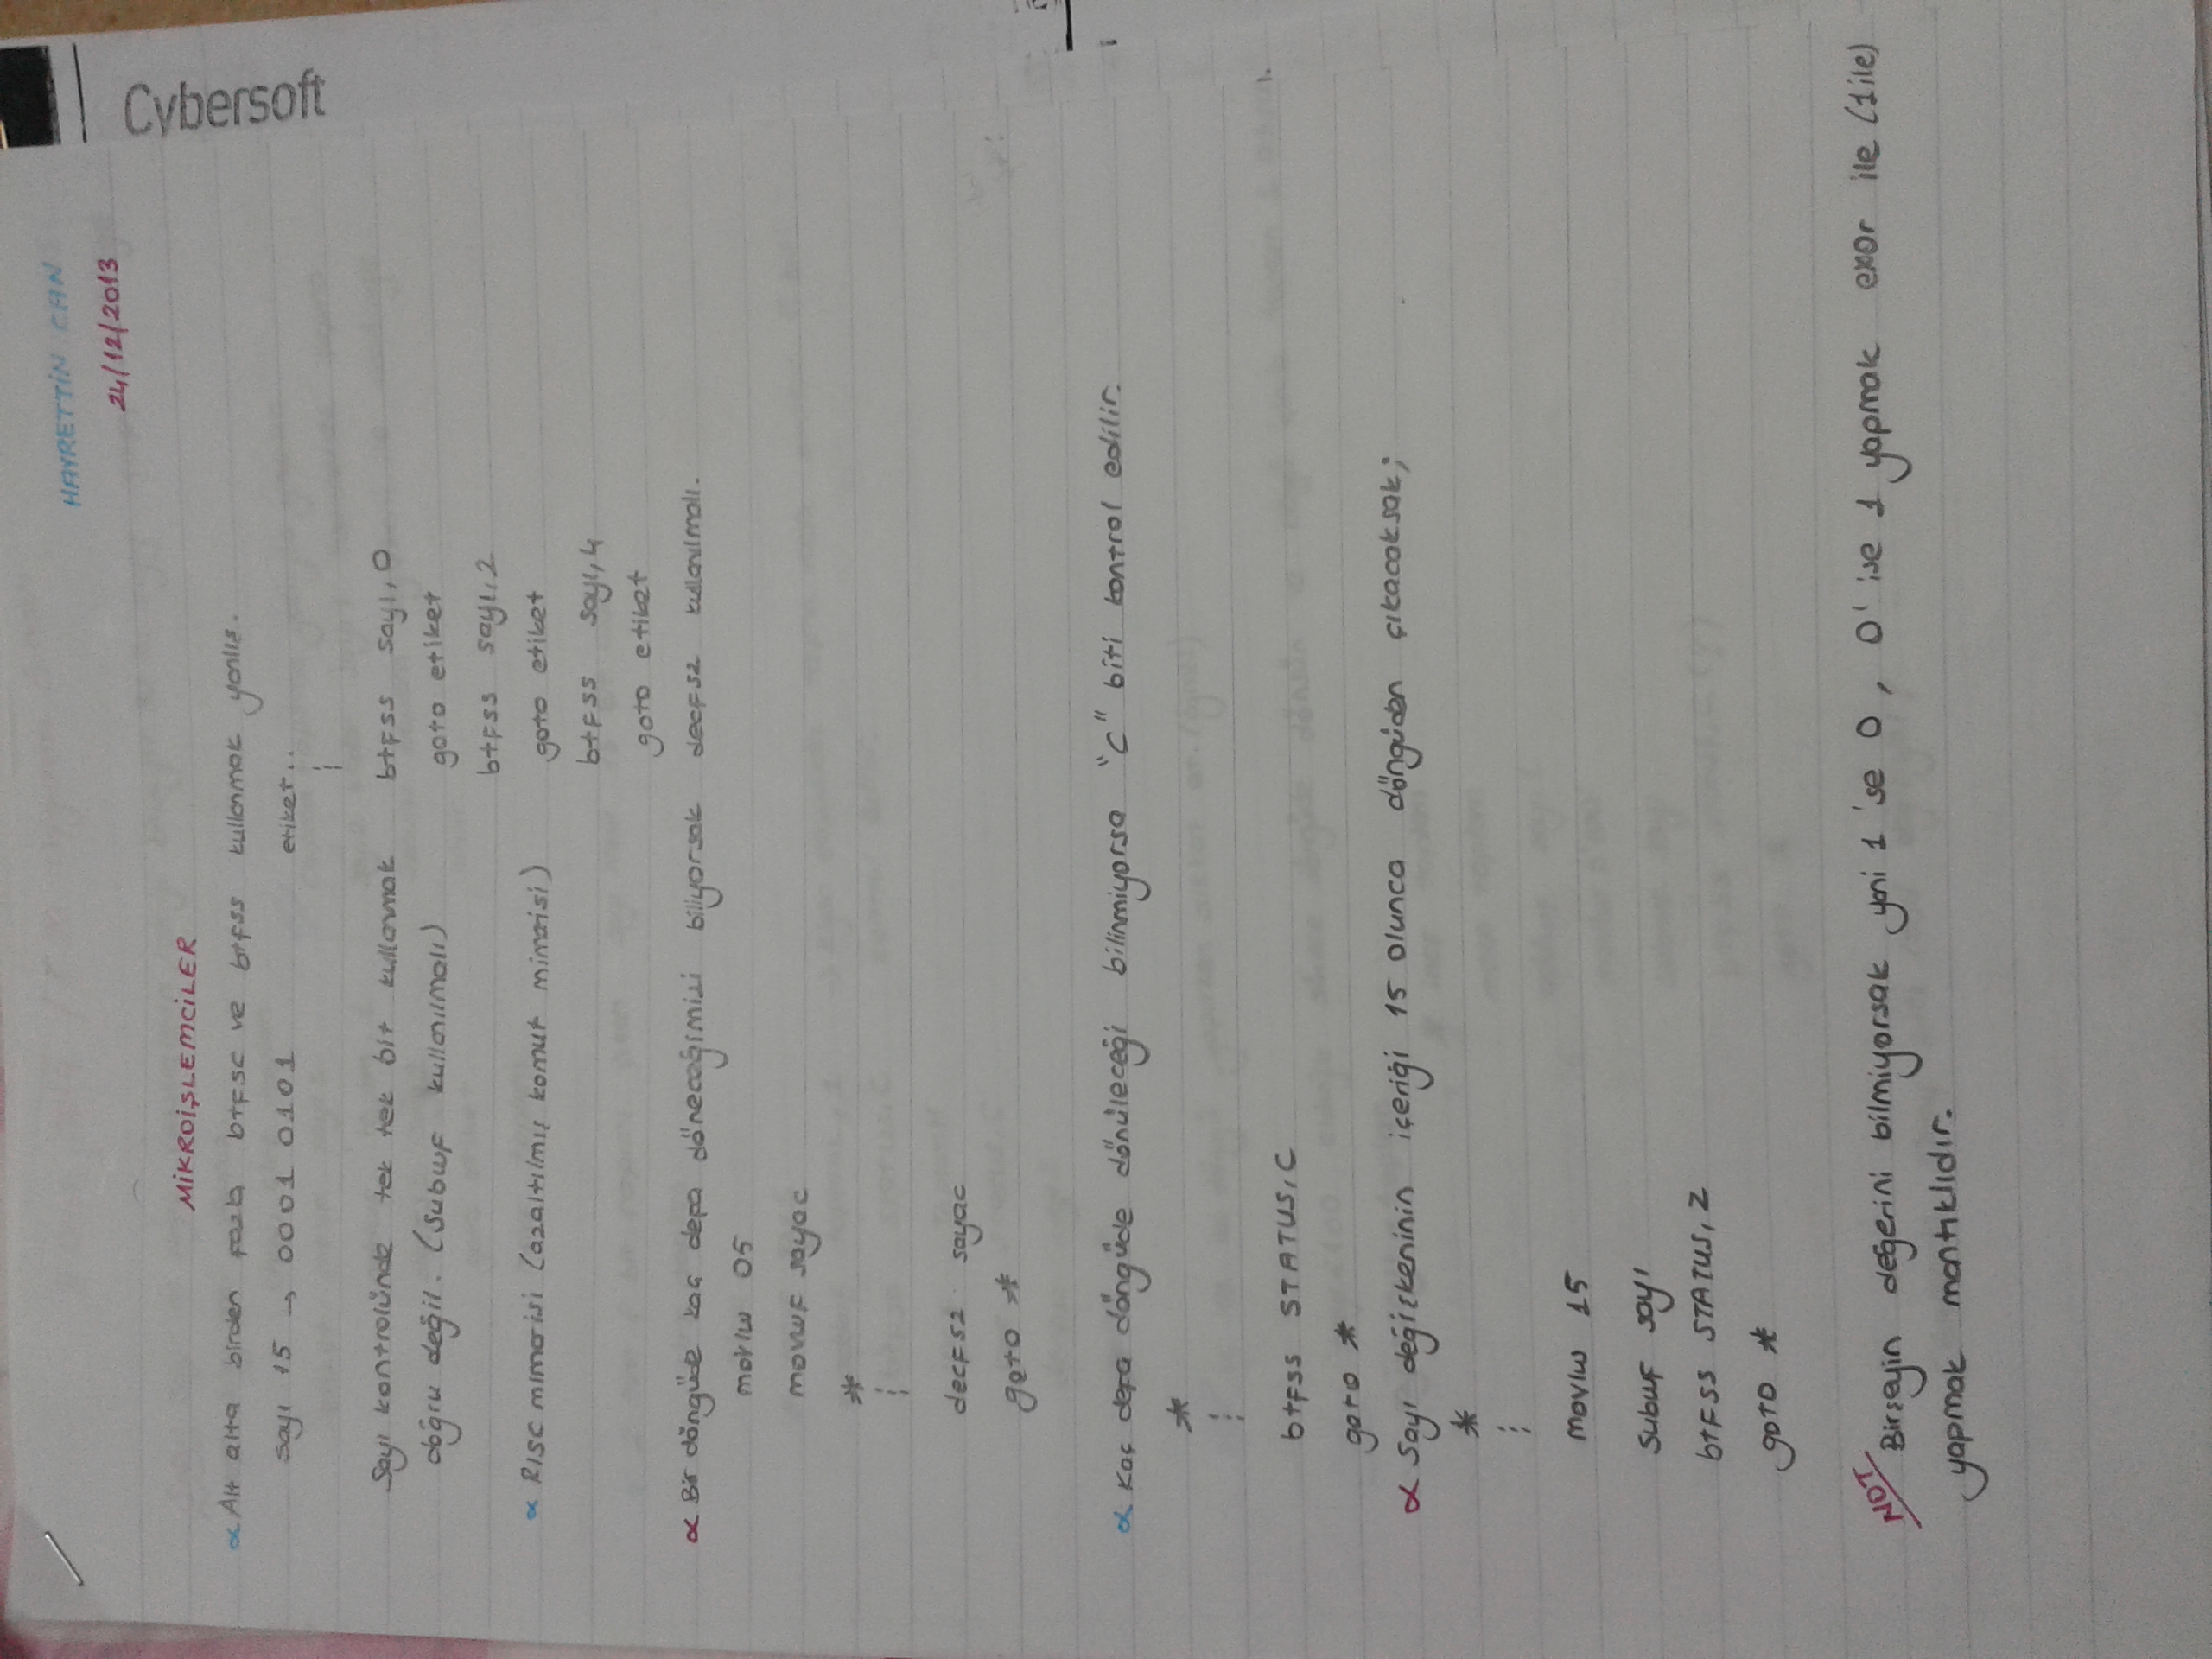 HAYRETTİN CAN
24/12/2013
Cybersoft
MİKROİŞLEMCİLER
∝ Alt alta birden fazla btfsc ve btfss kullanmak yanlış.
sayı 15 → 0001 0101
etiket..
Sayı kontrolünde tek tek bit kullanmak
doğru değil. (Subwf kullanılmalı)
btfss sayı,0
goto etiket
btfss sayı,2
goto etiket
btfss sayı,4
goto etiket
∝ RISC mimarisi (azaltılmış komut mimarisi)
∝ Bir döngüde kaç defa döneceğimizi biliyorsak decfsz kullanılmalı.
movlw 05
movwf sayac
*
decfsz sayac
goto *
∝ Kaç defa döngüde dönüleceği bilinmiyorsa "C" biti kontrol edilir.
*
btfss STATUS,C
goto *
∝ Sayı değişkeninin içeriği 15 olunca döngüden çıkacaksak;
*
movlw 15
Subwf sayı
btfss STATUS,Z
goto *
NOT Birşeyin değerini bilmiyorsak yani 1'se 0, 0'ise 1 yapmak exor ile (1 ile)
yapmak mantıklıdır.